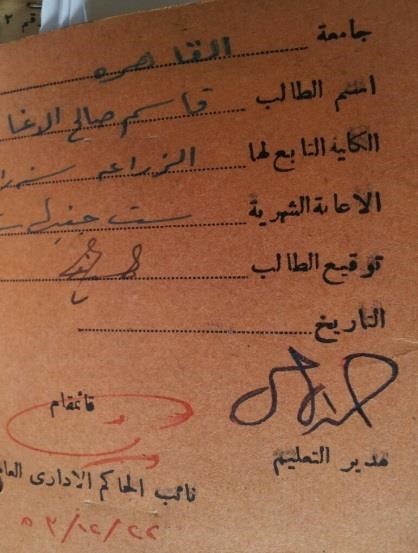 قم ٢
جامعة القاهره
اسم الطالب قاسم صالح الاغا
الكلية التابع لها الزراعه
الاعانة الشهرية ست
توقيع الطالب
التاريخ
مدير التعليم
قائمقام
نائب الحاكم الادارى العا